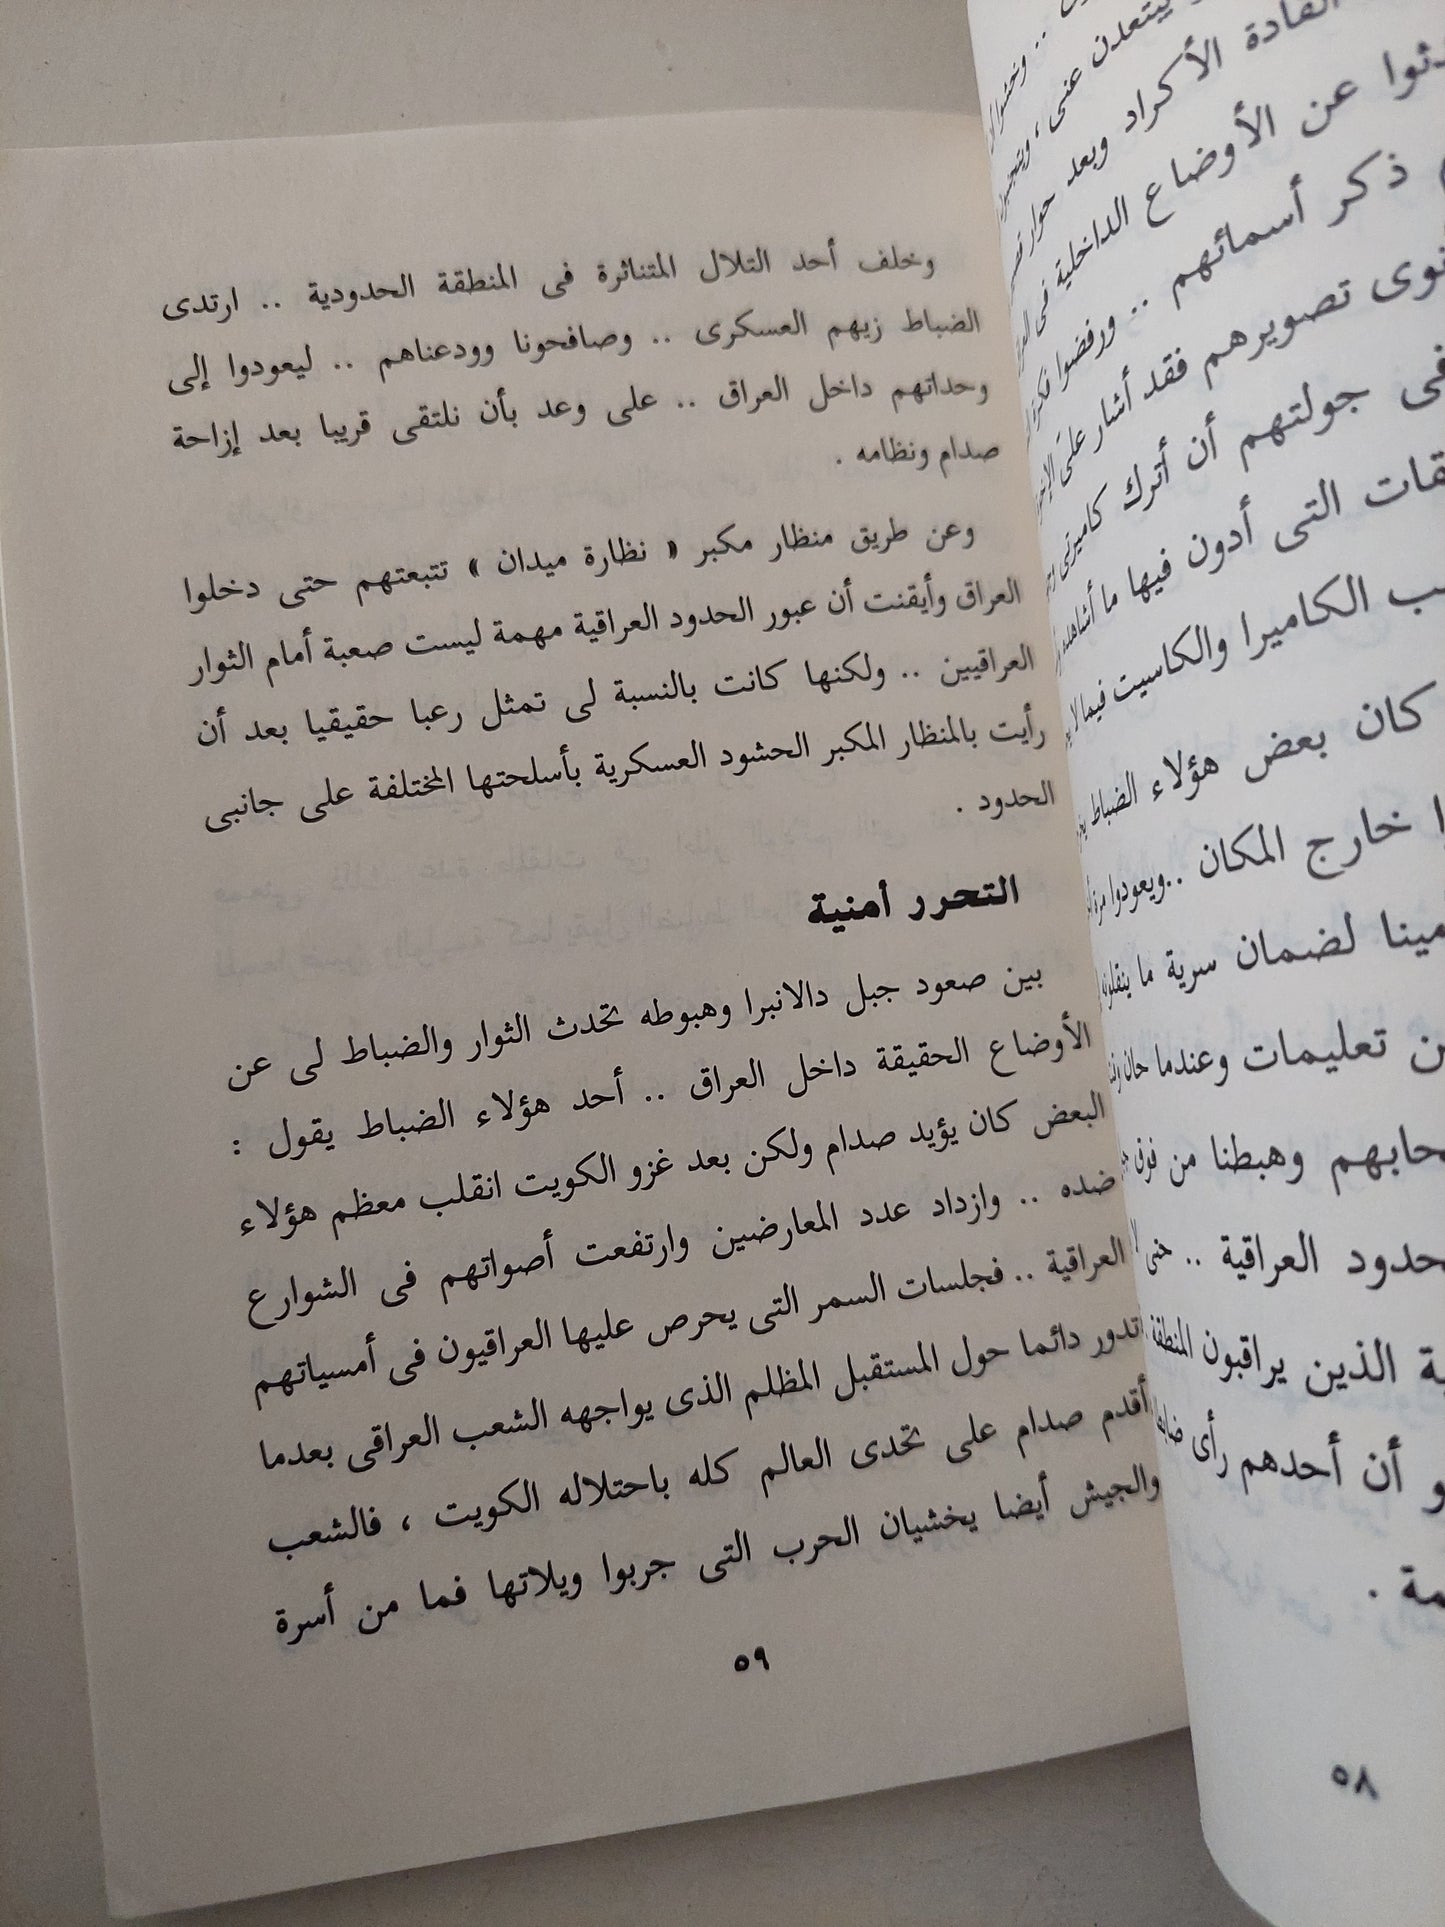 القادة الأكراد وبعد حوار
عن الأوضاع الداخلية فى
ذكر أسمائهم .. ورفضوا فكرة
تصويرهم فقد أشار على
فى جولتهم أن أترك كاميرتى
التى أدون فيها ما أشاهده
الكاميرا والكاسيت فيما لا
كان بعض هؤلاء الضباط
خارج المكان .. ويعودوا مرة
لضمان سرية ما ينقلونه
تعليمات وعندما حان
وهبطنا من فوق
العراقية .. حتى لا
الذين يراقبون المنطقة
أن أحدهم رأى
٥٨
وخلف أحد التلال المتناثرة فى المنطقة الحدودية .. ارتدى
الضباط زيهم العسكرى .. وصافحونا وودعناهم .. ليعودوا إلى
وحداتهم داخل العراق .. على وعد بأن نلتقى قريبا بعد إزاحة
صدام ونظامه .
وعن طريق منظار مكبر « نظارة ميدان » تتبعتهم حتى دخلوا
العراق وأيقنت أن عبور الحدود العراقية مهمة ليست صعبة أمام الثوار
العراقيين .. ولكنها كانت بالنسبة لى تمثل رعبا حقيقيا بعد أن
رأيت بالمنظار المكبر الحشود العسكرية بأسلحتها المختلفة على جانبى
الحدود .
التحرر أمنية
بين صعود جبل دالانبرا وهبوطه تحدث الثوار والضباط لى عن
الأوضاع الحقيقة داخل العراق .. أحد هؤلاء الضباط يقول :
البعض كان يؤيد صدام ولكن بعد غزو الكويت انقلب معظم هؤلاء
ضده .. وازداد عدد المعارضين وارتفعت أصواتهم فى الشوارع
العراقية .. فجلسات السمر التى يحرص عليها العراقيون فى أمسياتهم
تدور دائما حول المستقبل المظلم الذى يواجهه الشعب العراقى بعدما
أقدم صدام على تحدى العالم كله باحتلاله الكويت ، فالشعب
والجيش أيضا يخشيان الحرب التى جربوا ويلاتها فما من أسرة
٥٩